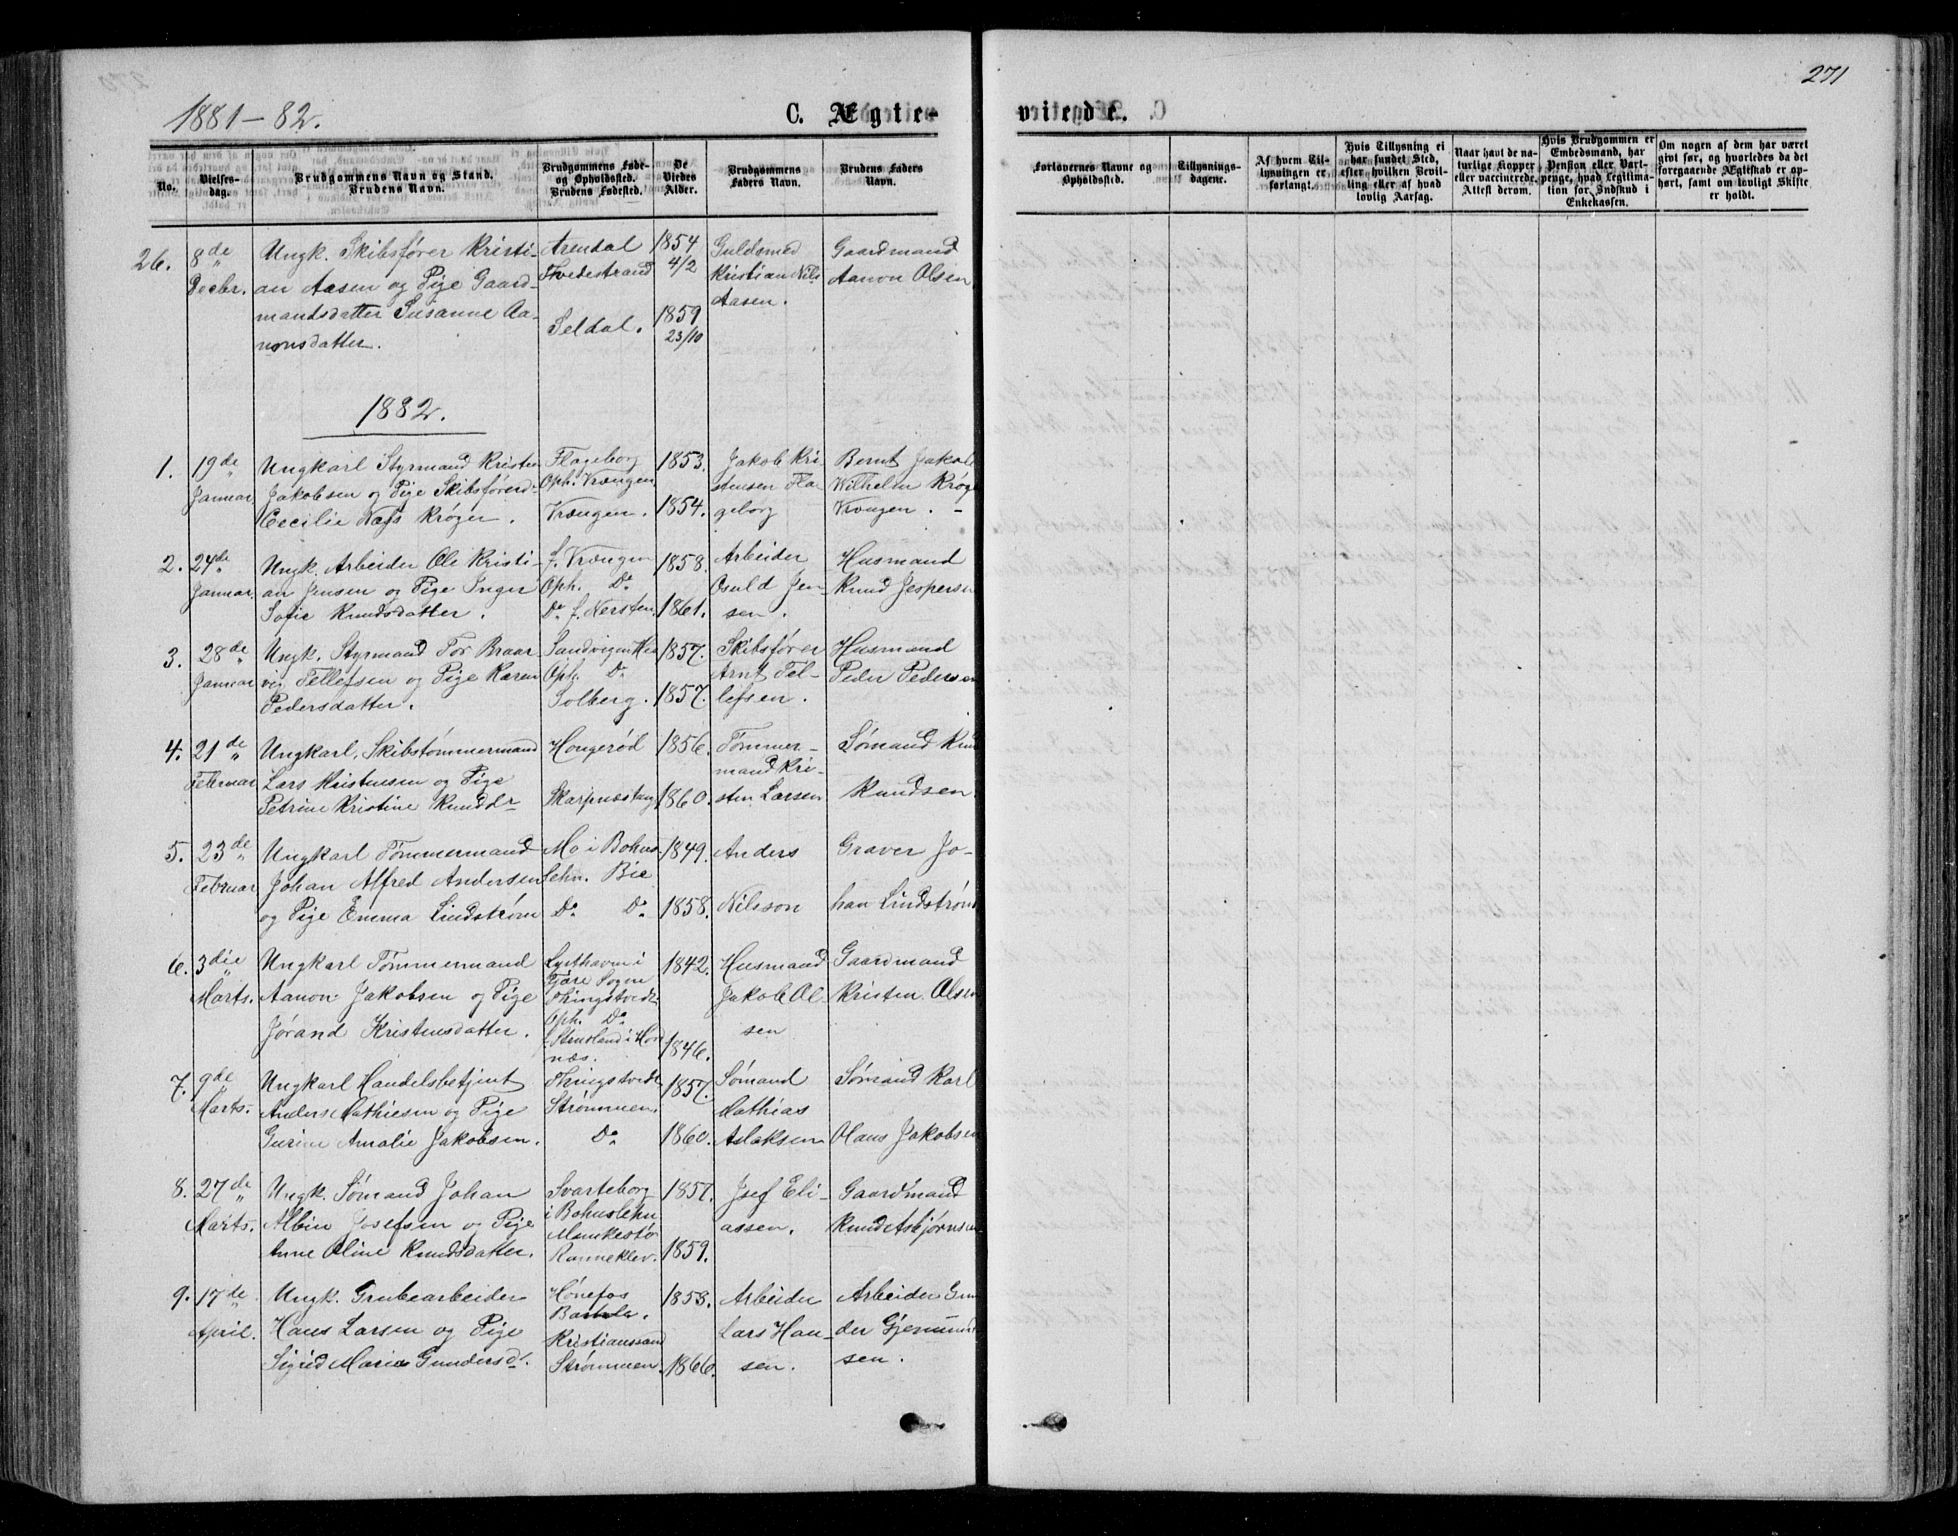 1881-82.
C. Ægte-
viede.
271
No.
Vielses-
dag.
Brudgommens Navn og Stand.
Brudens Navn.
Brudgommens Føde-
og Opholdssted.
Brudens Fødested.
De
Viedes
Alder.
Brudgommens
Faders Navn.
Brudens Faders
Navn.
Forlovernes Navne og
Opholdssted.
Tillysnings-
dagene.
Af hvem Til-
lysningen er
forlangt.
Hvis Tillysning ei
har fundet Sted,
efter hvilken Bevil-
ling eller af hvad
lovlig Aarsag.
Naar havt de na-
turlige Kopper
eller vaccinerede.
Attest derom.
Hvis Brudgommen er
Embedsmand, har
Pension eller Vart-
penge, hvad Legitima-
tion for Indskud i
Enkekassen.
Om nogen af dem har været
givt før, og hvorledes da det
foregaaende Ægteskab er op-
hørt, samt om lovligt Skifte
er holdt.
26.
8de
Decbr.
Ungk. Skibsfører Kristi-
an Aasen og Pige Gaard-
mandsdatter Susanne Aa-
nonsdatter.
Arendal
Tvedestrand
Seldal.
1854
4/2
1859
23/10
Guldsmed
Kristian Nils
Aasen.
Gaardmand
Aanon Olsen
1882.
1.
19de
Januar
Ungkarl Styrmand Kristen
Jakobsen og Pige Skibsførerd.
Cecilie Næss Krøger.
Flageborg
Oph. Vrængen
Vrængen.
1853.
1854.
Jakob Kri
stensen Fla
geborg
Bernt Jakob
Wilhelm Krøge
Vrængen.
2.
24de
Januar
Ungk. Arbeider Ole Kristi-
an Jensen og Pige Inger
Sofie Knudsdatter.
f. Vrængen
Oph. Do
Do f. Nersten.
1858.
1861.
Arbeider
Osuld Jen-
sen.
Husmand
Knud Jespersen
3.
28de
Januar
Ungk. Styrmand Tor Braar
vig Tellefsen og Pige Karen
Pedersdatter.
Sandvigen His
Oph. Do
Solberg.
1857.
1857.
Skibsfører
Arnt Tel-
lefsen.
Husmand
Peder Pedersen
4.
21de
Februar
Ungkarl, Skibstømmermand
Lars Kristensen og Pige
Petrine Kristine Knudsdr
Hougerød
Skarpnæstang
1856.
1860.
Tømmer-
mand Kri-
sten Larsen
Sømand Knu
Knudsen
5.
23de
Februar
Ungkarl Tømmermand
Johan Alfred Andersen
og Pige Emma Lindstrøm
Mo i Bohus
Lehn. Bie
Do Do
1849.
1858.
Anders
Nilsson
Graver Jo-
han Lindstrøm
6.
3die
Marts.
Ungkarl Tømmermand
Aanon Jakobsen og Pige
Jørand Kristensdatter.
Lysthaven i
Fjære Sogn
Thingstvedt
Oph. Do
f. Stensland i Hor
næs.
1842.
1846.
Husmand
Jakob Ol
sen
Gaardmand
Kristen Olsen
7.
9de
Marts.
Ungkarl Handelsbetjent
Anders Mathiesen og Pige
Gurine Amalie Jakobsen.
Thingstvedt
Strømmen.
Do
1857.
1860.
Sømand
Mathias
Aslaksen
Sømand Karl
Olaus Jakobsen
8.
27de
Marts.
Ungk. Sømand Johan
Albin Josefsen og Pige
Anne Oline Knudsdatter.
Svarteborg
i Bohuslehn
Munkestø
Ranneklev.
1857.
1859.
Josef Eli-
assen.
Gaardmand
Knud Asbjørnsen
9.
17de
April.
Ungk. Grubearbeider
Hans Larsen og Pige
Sigrid Marie Gundersd.
Hønefos
Kristianssand
Strømmen.
1858.
1866.
Arbeider
Lars Han-
sen.
Arbeider Gun
der Gjemund
sen.